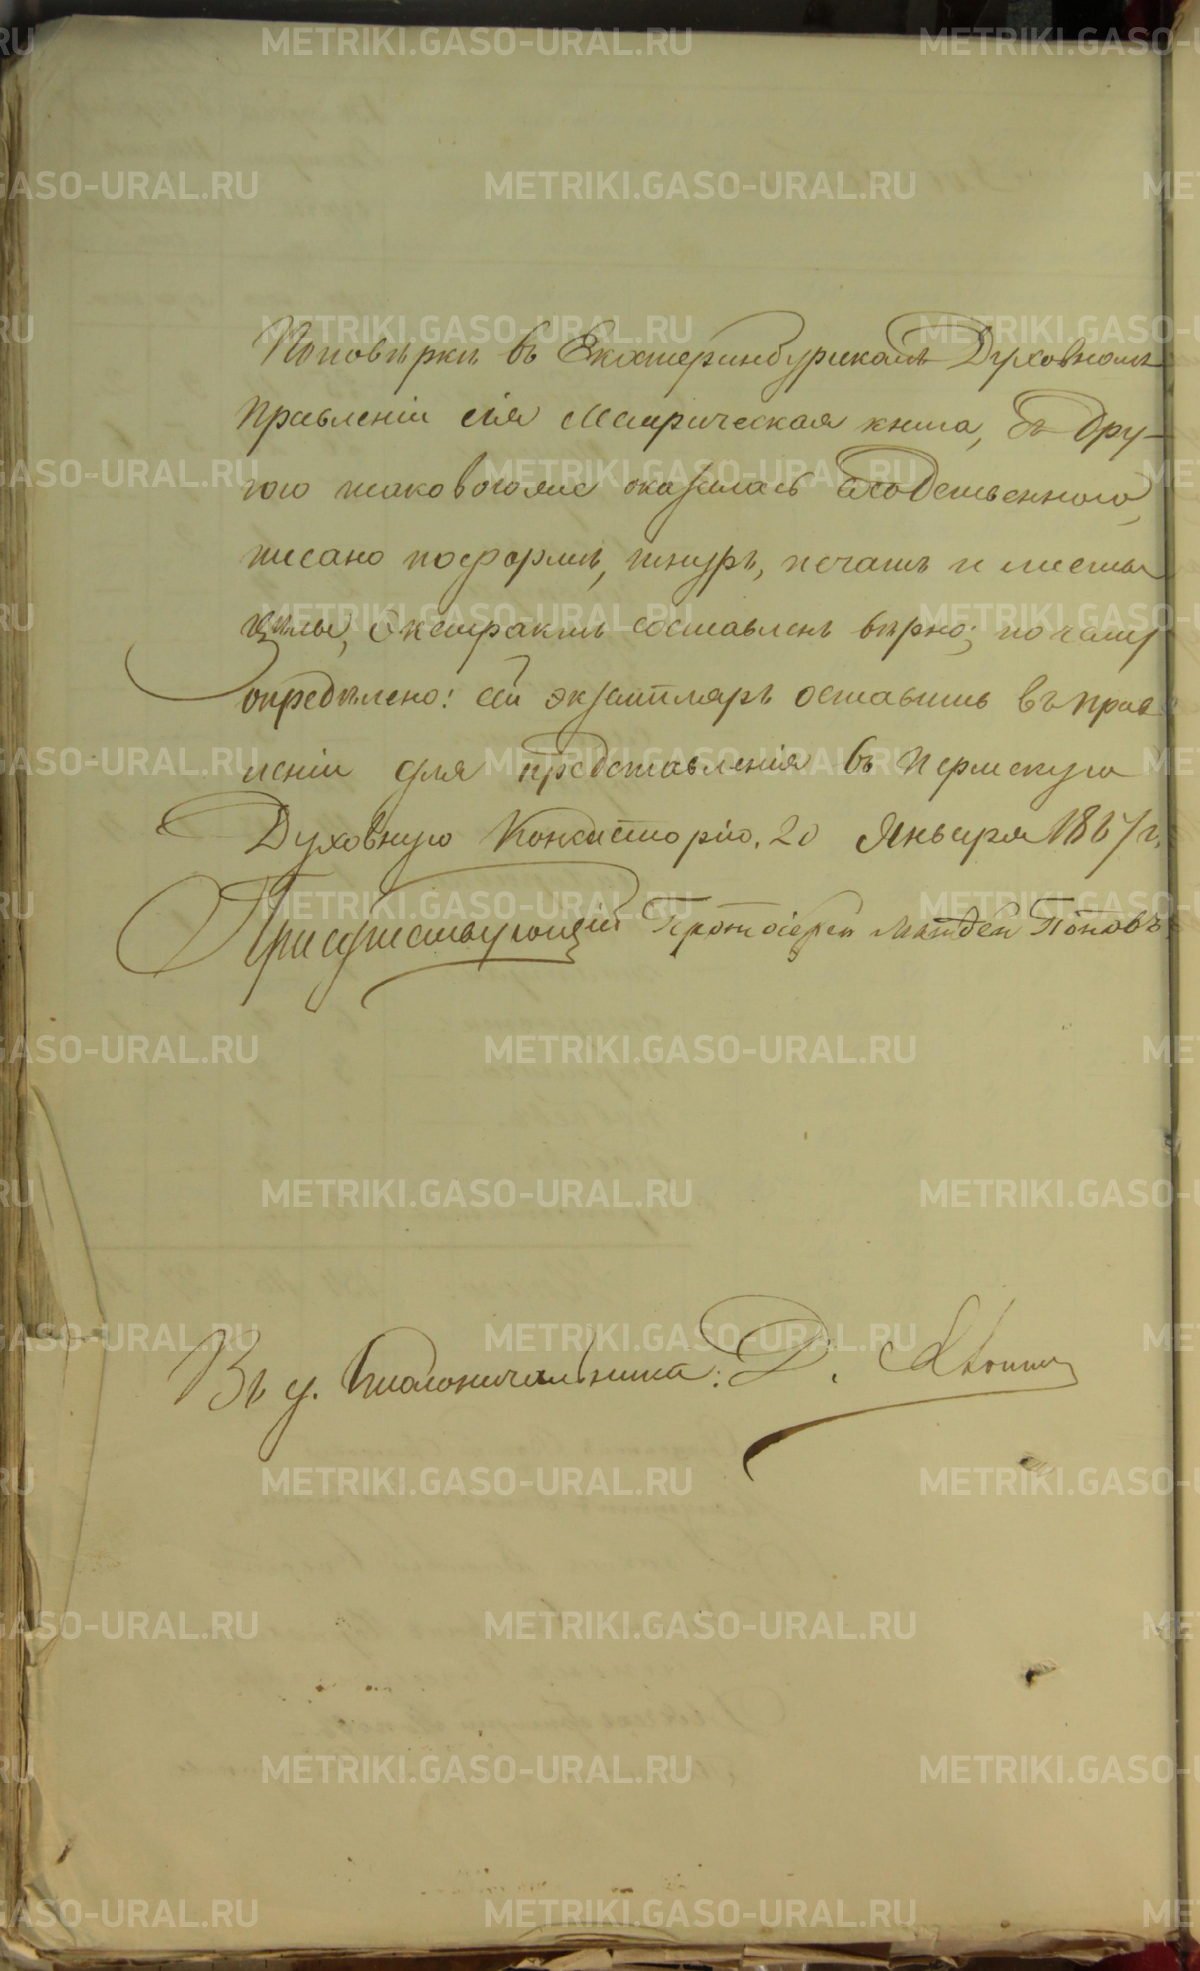 Поповѣркѣ въ Екатеринбургскомъ Духовномъ
Правленіи сія Метрическая книга, съ дру-
гою таковоюже оказалась сходственною,
писано поформѣ, шнуръ, печать и листы
цѣлы, Экстрактъ составленъ вѣрно; почему
опредѣлено: сей экземпляръ оставить въ прав
леніи для представленія въ Пермскую
Духовную Консисторію. 20 Января 1867 г.
Присутствующій Протоіерей Матвей Поповъ
Въ д. Столоначальника: Д.
METRIKI.GASO-URAL.RU